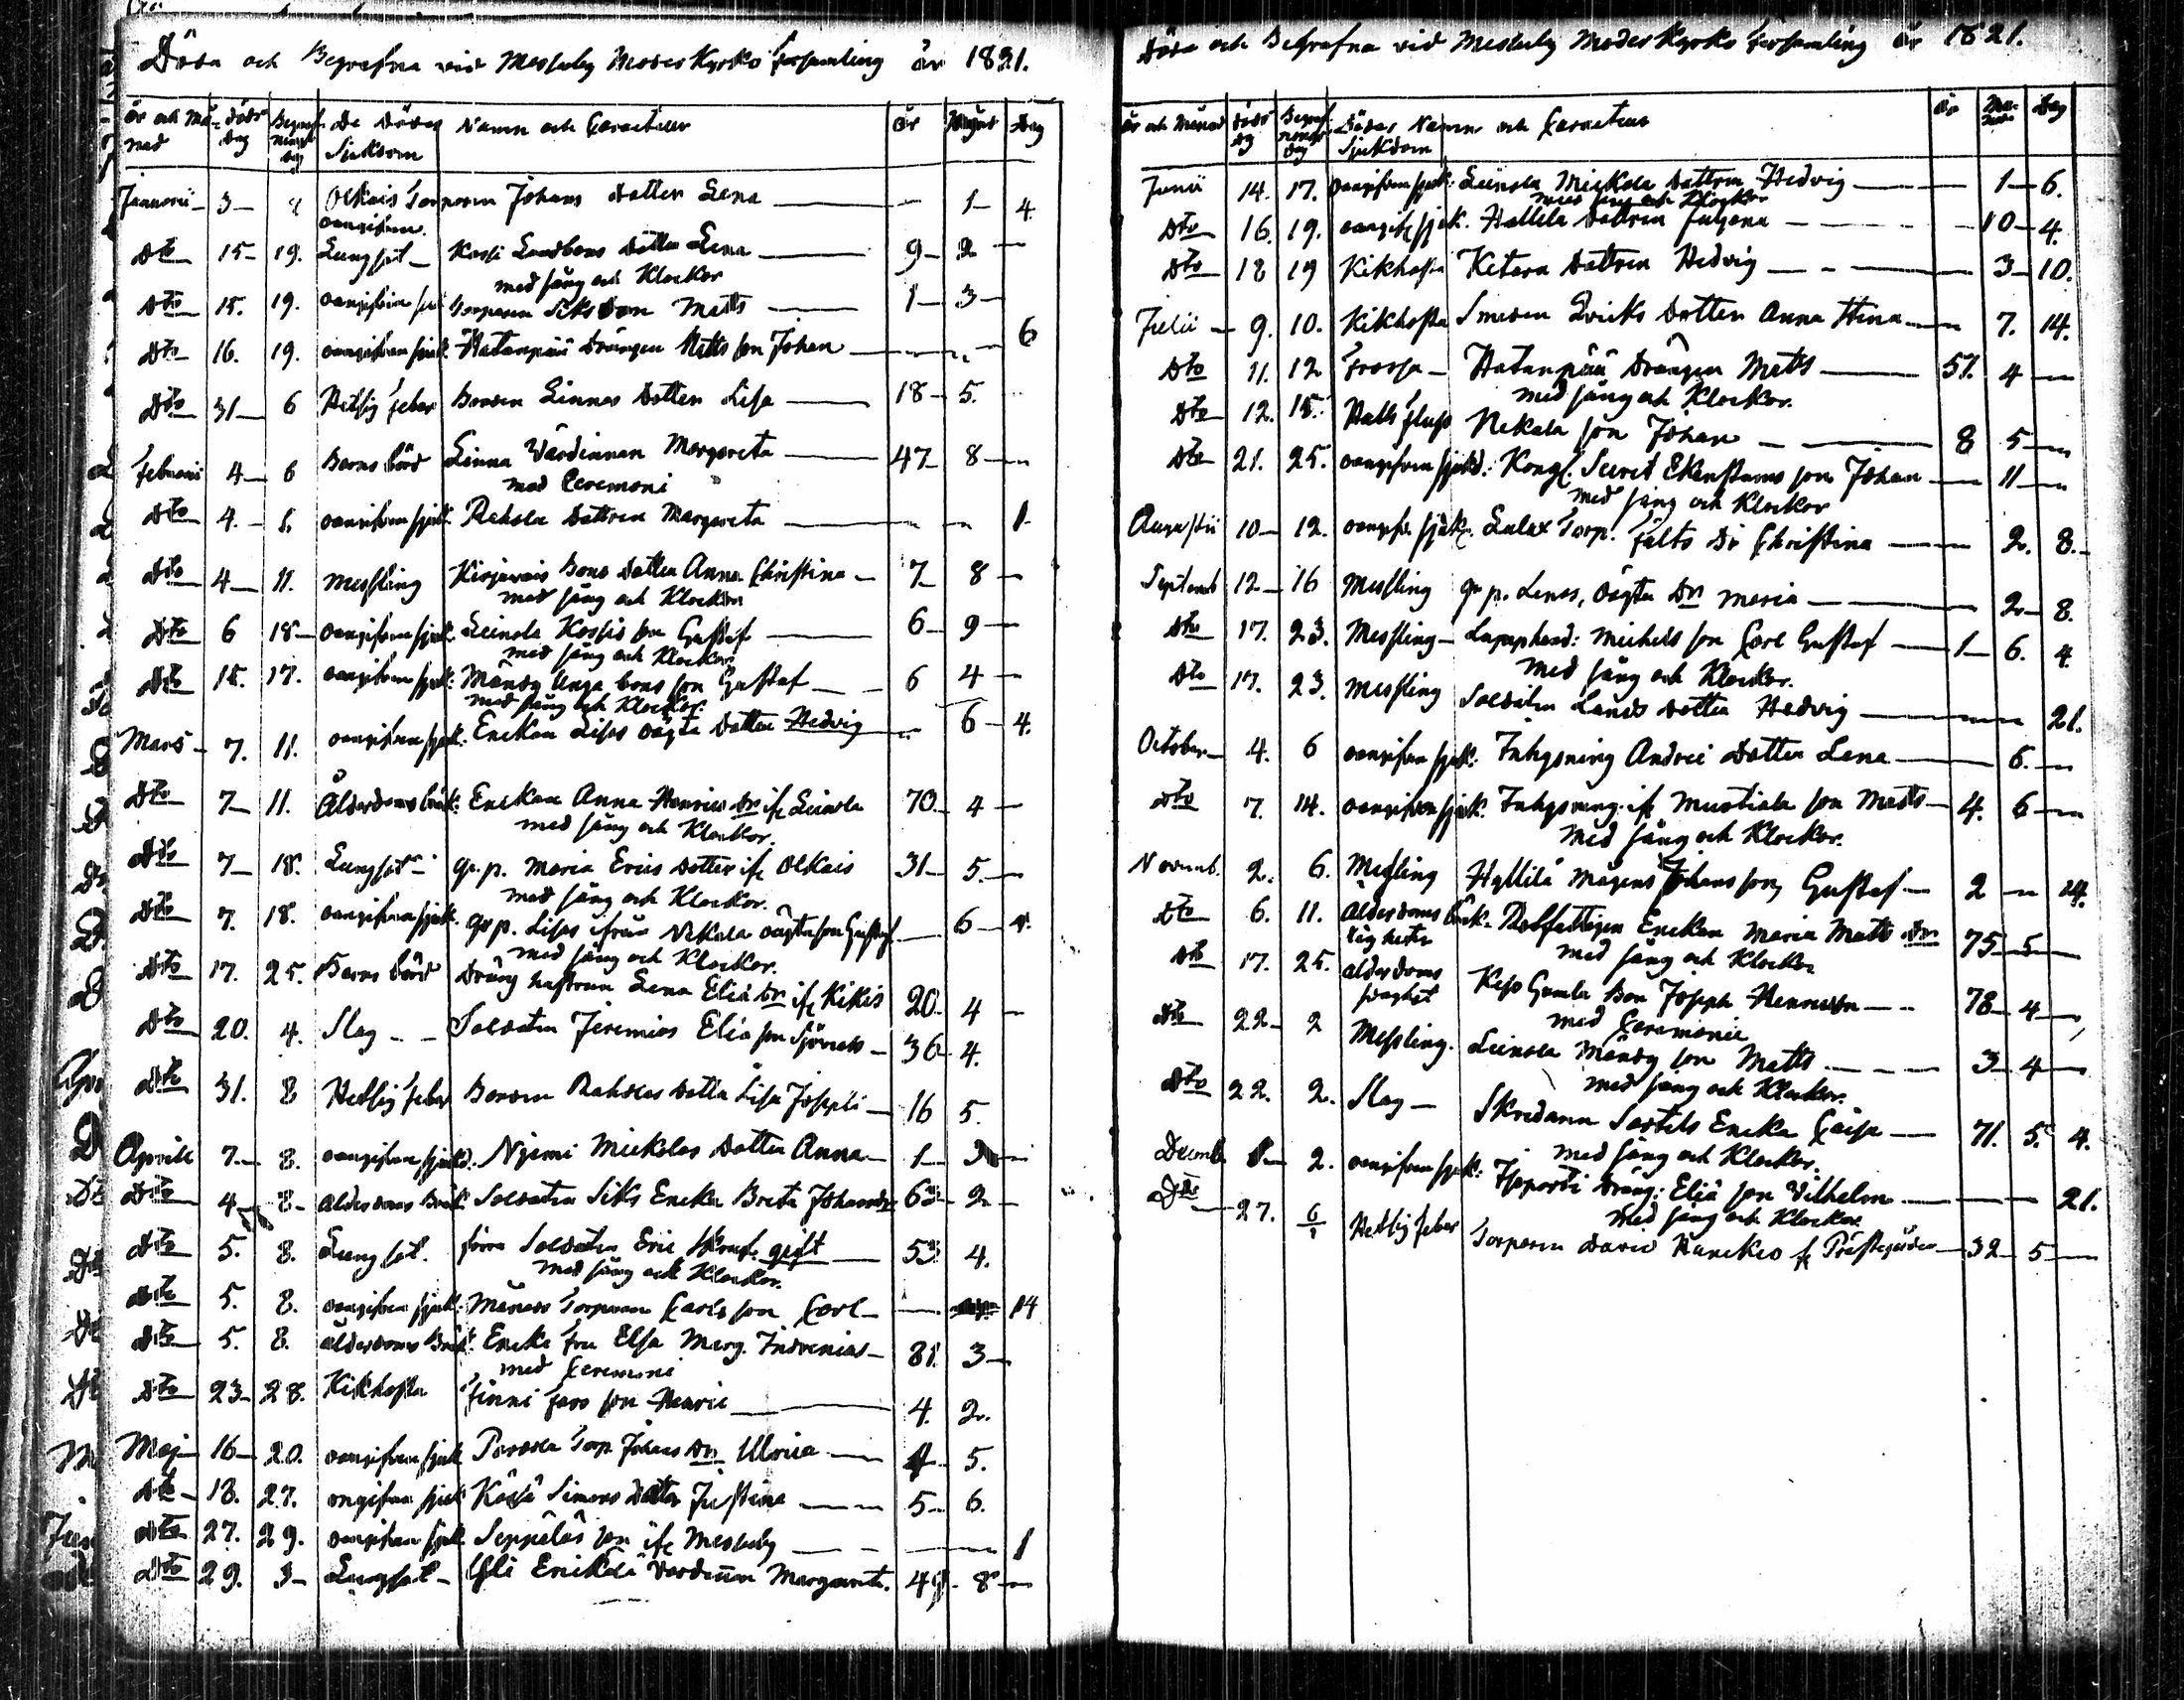 Döda och Begrafna vid Messuby Moder Kyrko Församling år 1821.
År och Månad Döds dag Begrafnings dag De Dödas Sjukdom Namn och Caracterer År Månad Dag
Januarii 3 Olkais Torparen Johans dotter Lena 1 4.
oangifven.
Dto 15 19. Lungsot Kossi Landbons Dotter Lena 9 2
med sång och Klockor
Dto 15. 19. oangifven Torparen Siks Son Matts 1 3
Dto 16. 19. oangifven sjuk. Hatanpää Drängen Matts son Johan 6
Dto 31 6 Hetsig feber Bonden Linnas Dotter Lisa 18 5.
Februarii 4 6 Barns börd Linna Värdinnan Margareta 47 8
med Ceremoni
Dto 4. 6. oangifven sjuk. Rahola Dottren Margareta 1
Dto 4 11. Messling Kirjavais Bons Dotter Anna Christina 7 8
med sång och Klockor
Dto 6 18 oangifven sjuk. Leinola Kossis son Gustaf 6 9
med sång och Klockor
Dto 15. 17. oangifven sjuk. Månsy Unga bons son Gustaf 6 4
med sång och Klockor.
Mars 7. 11. oangifven sjuk. Enkan Lisas oägta Dotter Hedvig 6 4.
Dto 7 11. Ålderdoms bräk. Enckan Anna Henrics Dr if. Leinola 70. 4
med sång och Klockor.
Dto 7 18. Lungsot qv. p. Maria Erics Dotter if. Olkais 31 5.
med sång och Klockor.
Dto 7. 18. oangifven sjuk. qv p. Lisas ifrån Nekala oägta son Gustaf 6
med sång och Klockor.
Dto 17. 25. Barns börd Dräng hustrun Lena Eliæ Dr if. Kikis 20. 4
Dto 20. 4. Slag Soldaten Jeremias Elia son 36 4.
Dto 31. 8 Hetsig feber Bonden Raholas Dotter Lisa Josephi 16 5.
Aprill 7. 8. oangifven sjukd. Njemi Mickolas Dotter Anna 1
Dto 4 8 ålderdoms Bräk. Soldaten Siks Encka Breta Johansdr 63 2
Dto 5. 8. Lungsot. förra Soldaten Eric gift 53 4.
med sång och Klockor.
Dto 5. 8. oangifven sjuk. Torparen Carls son Carl 14
Dto 5. 8. ålderdoms Bräk. Encke Fru Elsa Marg. Indrenius 81. 3
med Ceremoni
Dto 23 28. Kikhosta Finni Fars son Henric 4. 2.
Maj 16 20. oangifven sjuk Torp. Johans Dr. Ulrica 5.
Dto 18. 27. ongifven sjuk Simons Dotter Justina 5 6.
Dto 27. 29. oangifven sjuk Seppäläs son if. Messuby 1
Dto 29. 3 Lungsot Yli Enickilä Värdinnan Margareta. 49 8
Döda och Begrafna vid Messuby Moder Kyrko Församling år 1821.
År och Månad Döds dag Begrafnings dag Dödas Sjukdom Namn och Caracterer År Månad Dag
Junii 14. 17. oangifven sjuk. Leinola Mickola Dottren Hedvig 1 6.
med sång och Klockor
Dto 16. 19. oangif. sjuk. Hallila Dottren Juljana 10 4.
Dto 18 19 Kikhosta Ketara Dottren Hedvig 3 10.
Julii 9. 10. Kikhosta Smeden Qvicks Dotter Anna Stina 7. 14.
Dto 11. 12 Frossa Hatanpää Drängen Matts 51. 4
med sång och Klockor.
Dto 12. 15. Hals fluss Nekala son Johan 8 5
Dto 21. 25. oangifven sjukd. Kongl. Secret Ekenstams son Johan 11
med sång och Klockor
Augustii 10 12. oangifv. sjuk. Lalax Torp. Fälts Dr Christina 2. 8.
Septemb 12 16 Messling qv p. Lenas, oägta Dr Maria 2 8.
Dto 17. 23. Messling Michels son Carl Gustaf 1 6. 4.
med sång och Klockor.
Dto 17. 23. Messling Soldaten Lands Dotter Hedvig 21.
October 4. 6 oangifven sjuk. Inhysning Andrei Dotter Lena 6.
Dto 7. 14. oangifven sjuk. Inhysning if. Mustiala son Matts 4. 6
med sång och Klockor.
Novemb. 2. 6. Messling Hyllilä Mågens Johans son, Gustaf 2 24.
Dto 6. 11. Ålderdoms Bräklighet Rotfattigen Enckan Maria Matts Dr 75 5
med sång och Klockor
Dto 17. 25. ålderdoms svaghet Gamla Bon Joseph Henricson 78 4
med Ceremonie
Dto 22 2 Messling. Leinola Månsy son Matts 3 4
med sång och Klockor.
Dto 22. 2. Slag Skredaren Sartels Encka Caisa 71. 5. 4.
med sång och Klockor.
Decemb 2. oangifven sjuk. Dräng. Eliæ son Vilhelm 21.
med sång och Klockor.
Dto 27. 6/1 Hetsig feber Torparen David f. Prästegården 32 5